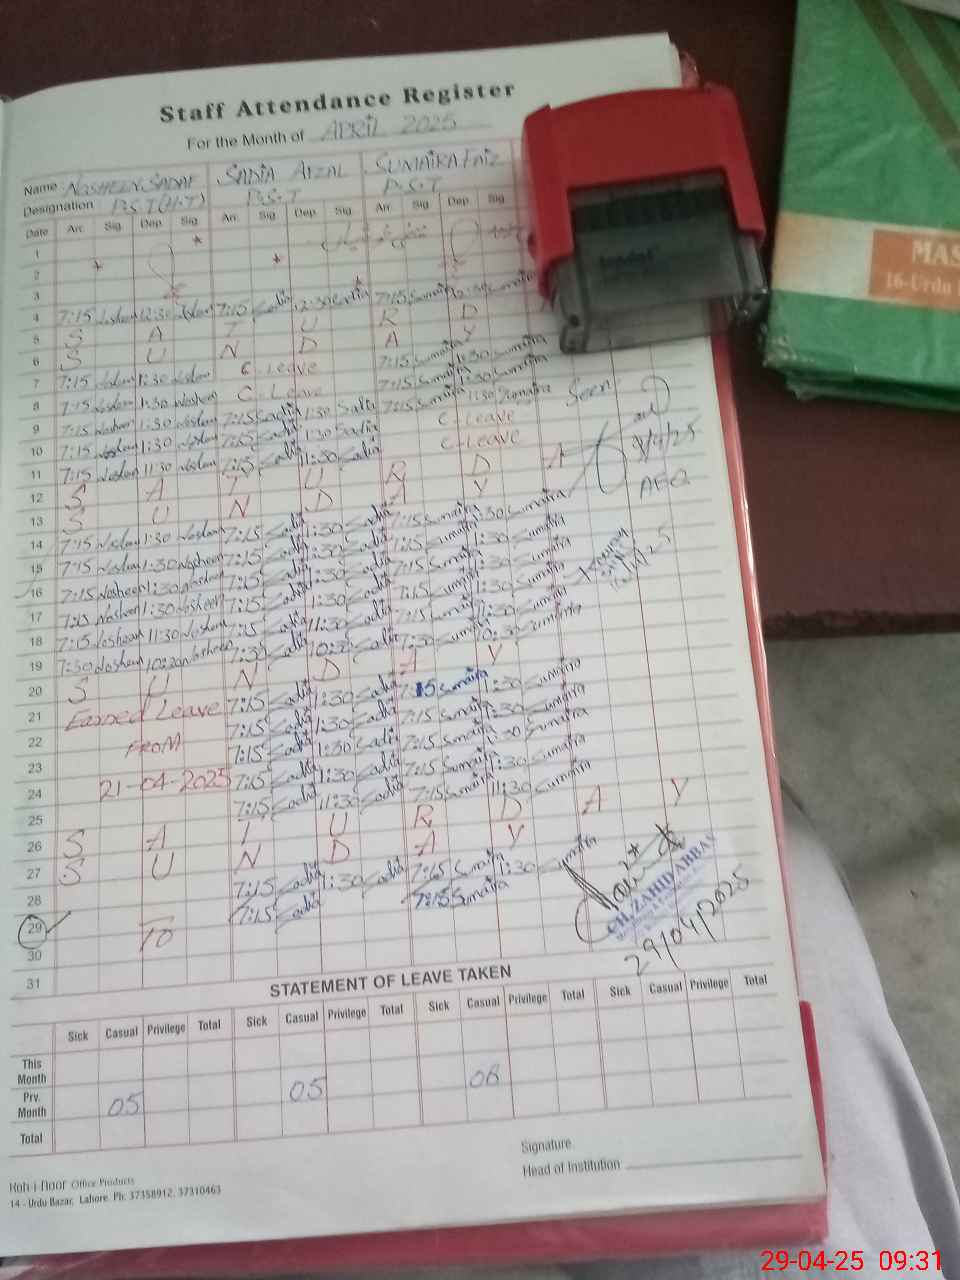 Staff Attendance Register
For the Month of APRIL 2025
Name NOSHEEN SADAF SADIA AFZAL SUMAIRA FAIZ
Designation P.S.T (H.T) P.S.T P.S.T
Date Arr. Sig. Dep. Sig. Arr. Sig. Dep. Sig. Arr. Sig. Dep. Sig.
1
2
3
4 7:15 12:30 7:15 Sadia 12:30 Sadia 7:15 Sumaira 12:30 Sumaira
5 S A T U R D A Y
6 S U N D A Y
7 7:15 1:30 C. Leave 7:15 Sumaira 1:30 Sumaira
8 7:15 1:30 Nosheen C. Leave 7:15 Sumaira 1:30 Sumaira
9 7:15 Nosheen 1:30 Nosheen 7:15 Sadia 1:30 Sadia 7:15 Sumaira 1:30 Sumaira
10 7:15 Nosheen 1:30 Nosheen 7:15 Sadia 1:30 Sadia C-Leave
11 7:15 Nosheen 11:30 Nosheen 7:15 Sadia 11:30 Sadia C-Leave
12 S A T U R D A
13 S U N D A Y
14 7:15 Nosheen 1:30 Nosheen 7:15 Sadia 1:30 Sadia 7:15 Sumaira 1:30 Sumaira
15 7:15 Nosheen 1:30 Nosheen 7:15 Sadia 1:30 Sadia 7:15 Sumaira 1:30 Sumaira
16 7:15 Nosheen 1:30 Nosheen 7:15 Sadia 1:30 Sadia 7:15 Sumaira 1:30 Sumaira
17 7:15 Nosheen 1:30 Nosheen 7:15 Sadia 1:30 Sadia 7:15 Sumaira 1:30 Sumaira
18 7:15 Nosheen 11:30 Nosheen 7:15 Sadia 11:30 Sadia 7:15 Sumaira 11:30 Sumaira
19 7:30 Nosheen 10:30 Nosheen 7:30 Sadia 10:30 Sadia 7:30 Sumaira 10:30 Sumaira
20 S U N D A Y
21 Earned Leave 7:15 Sadia 1:30 Sadia 7:15 Sumaira 1:30 Sumaira
22 FROM 7:15 Sadia 1:30 Sadia 7:15 Sumaira 1:30 Sumaira
23 7:15 Sadia 1:30 Sadia 7:15 Sumaira 1:30 Sumaira
24 21-04-2025 7:15 Sadia 1:30 Sadia 7:15 Sumaira 1:30 Sumaira
25 7:15 Sadia 11:30 Sadia 7:15 Sumaira 11:30 Sumaira
26 S A T U R D A Y
27 S U N D A Y
28 7:15 Sadia 1:30 Sadia 7:15 Sumaira 1:30 Sumaira
29 7:15 Sadia 7:15 Sumaira
30 TO
31
Seen
AEO
CH. ZAHID ABBAS
29/04/2025
STATEMENT OF LEAVE TAKEN
Sick Casual Privilege Total Sick Casual Privilege Total Sick Casual Privilege Total Sick Casual Privilege Total
This Month
Prv. Month 05 05 06
Total
Signature
Head of Institution
Koh-i-noor Office Products
14 - Urdu Bazar, Lahore. Ph. 37358912, 37310463
MAS
16-Urdu
29-04-25 09:31